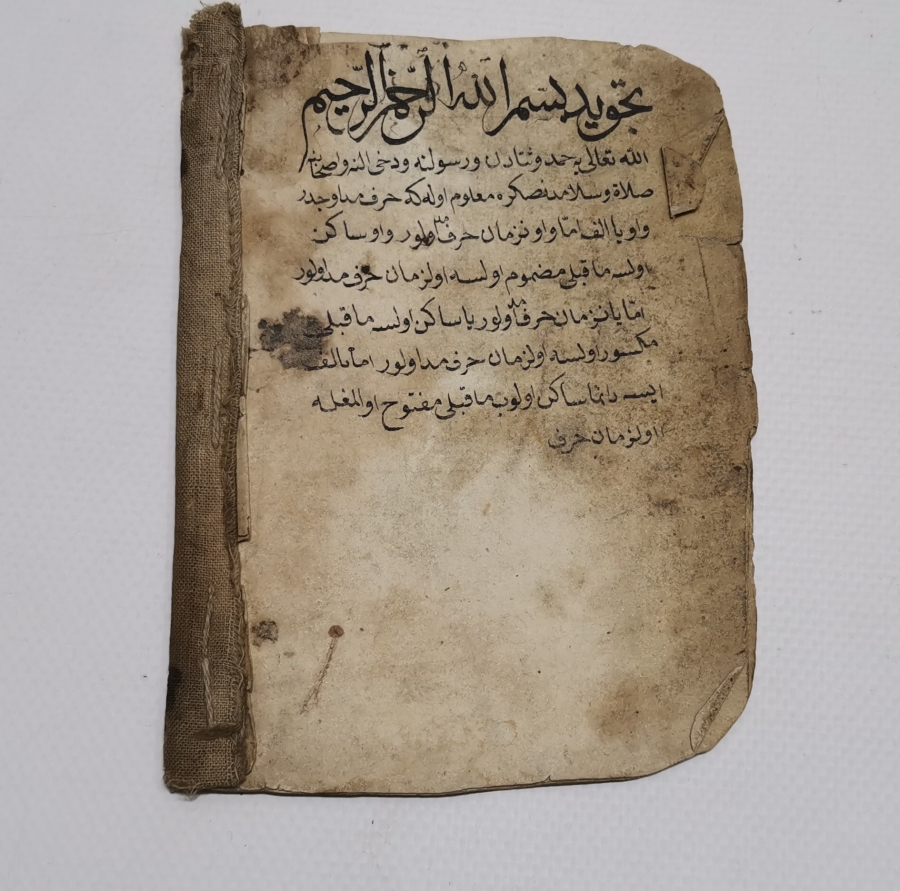 تجويد بسم الله الرحمن الرحيم
الله تعالى يه حمد وثنادن ورسولنه ودخى النه واصحابنه
صلاة وسلامدنصكره معلوم اوله كه حرف مد اوچدر
واو يا الف امّا واو نزمان حرف مدّ اولور واو ساكن
اولسه ما قبلى مضموم اولسه اولزمان حرف مد اولور
امّا يا نزمان حرف مدّ اولور يا ساكن اولسه ما قبلى
مكسور اولسه اولزمان حرف مد اولور اما الف
ايسه دائما ساكن اولوب ما قبلى مفتوح اولمغله
اولزمان حرف